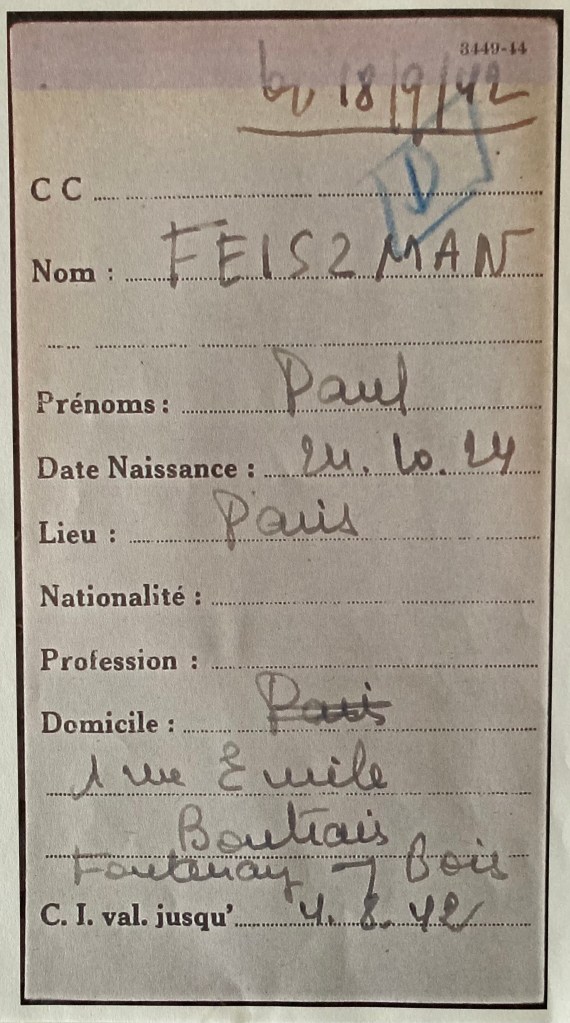 3449-44
18/9/42
D
C C
Nom : FEISZMAN
Prénoms : Paul
Date Naissance : 24.10.24
Lieu : Paris
Nationalité :
Profession :
Domicile : Paris
1 rue Emile
Boutrais
Fontenay s/ Bois
C. I. val. jusqu' 4.8.42